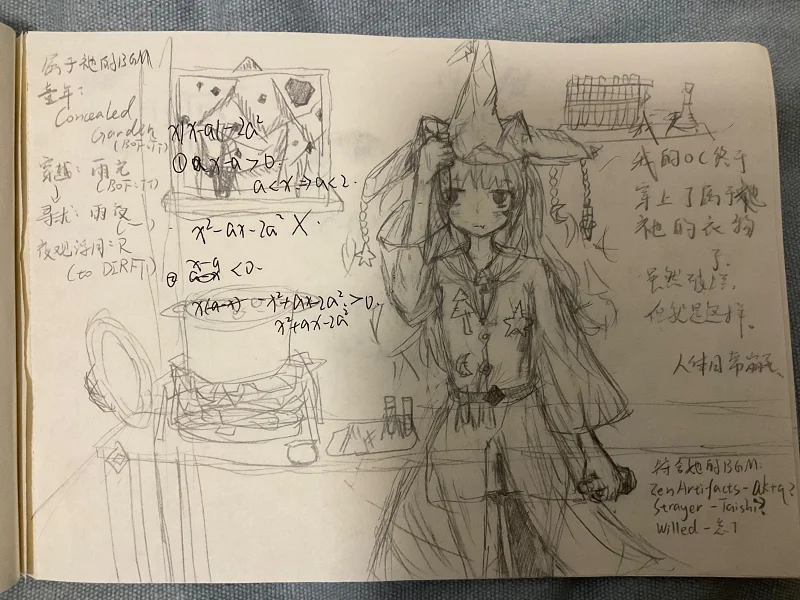 属于祂的BGM
童年:
Concealed
Garden
(BOF:TT)
穿越: 雨光
(BOF:TT)
寻龙: 雨夜
夜观浮图:R
(to DIRFT)
x|x-a|-2a²
① a x-a>0.
a<x⇒a<2.
x²-ax-2a² X.
② x-a<0.
x(a-x) -x²+ax-2a²>0.
x²+ax-2a²
我
我的OC终于
穿上了属于祂
祂的衣物
了.
虽然
但就是这样.
人体日常崩坏
符合她的BGM:
Zen Artifacts-ak+q?
Strayer-Taishi?
Willed-忘了